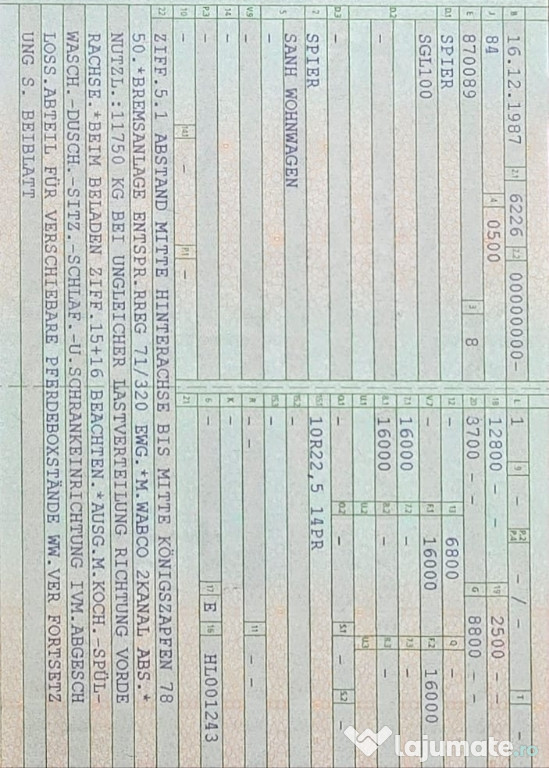 B 16.12.1987 2.1 6226 2.2 00000000-
J 84 4 0500
E 870089 3 8
D.1 SPIER
SGL100
D.2 -
-
D.3 -
? SPIER
5 SANH WOHNWAGEN
-
V.9 -
14 -
P.3 -
10 - 14.1 - P.1 -
L 1 9 - P.2 P.4 - / - T -
18 12800 - - 19 2500 - -
20 3700 - - G 8800 - -
12 - 13 6800 Q -
V.7 - F.1 16000 F.2 16000
7.1 16000 7.2 - 7.3 -
8.1 16000 8.2 - 8.3 -
U.1 - U.2 - U.3 -
O.1 - O.2 - S.1 - S.2 -
15.1 10R22,5 14PR
15.2 -
15.3 -
R - - 11 - -
K -
6 - 17 E 16 HL001243
21
22 ZIFF.5.1 ABSTAND MITTE HINTERACHSE BIS MITTE KÖNIGSZAPFEN 78
50.*BREMSANLAGE ENTSPR.RREG 71/320 EWG.*M.WABCO 2KANAL ABS.*
NUTZL.:11750 KG BEI UNGLEICHER LASTVERTEILUNG RICHTUNG VORDE
RACHSE.*BEIM BELADEN ZIFF.15+16 BEACHTEN.*AUSG.M.KOCH.-SPÜL-
WASCH.-DUSCH.-SITZ.-SCHLAF.-U.SCHRANKEINRICHTUNG IVM.ABGESCH
LOSS.ABTEIL FÜR VERSCHIEBARE PFERDEBOXSTÄNDE WW.VER FORTSETZ
UNG S. BEIBLATT
lajumate.ro